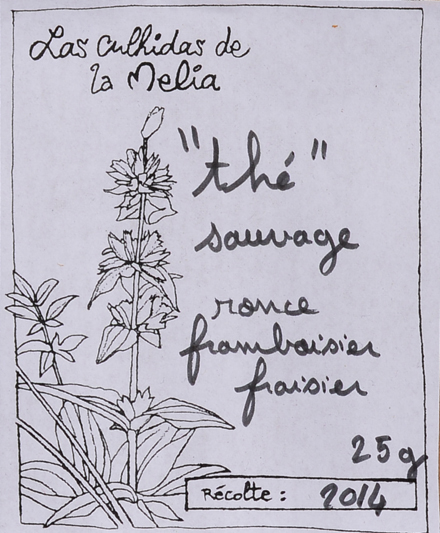 Las culhidas de
la Melia
"thé"
sauvage
ronce
framboisier
fraisier
25g
Récolte : 2014